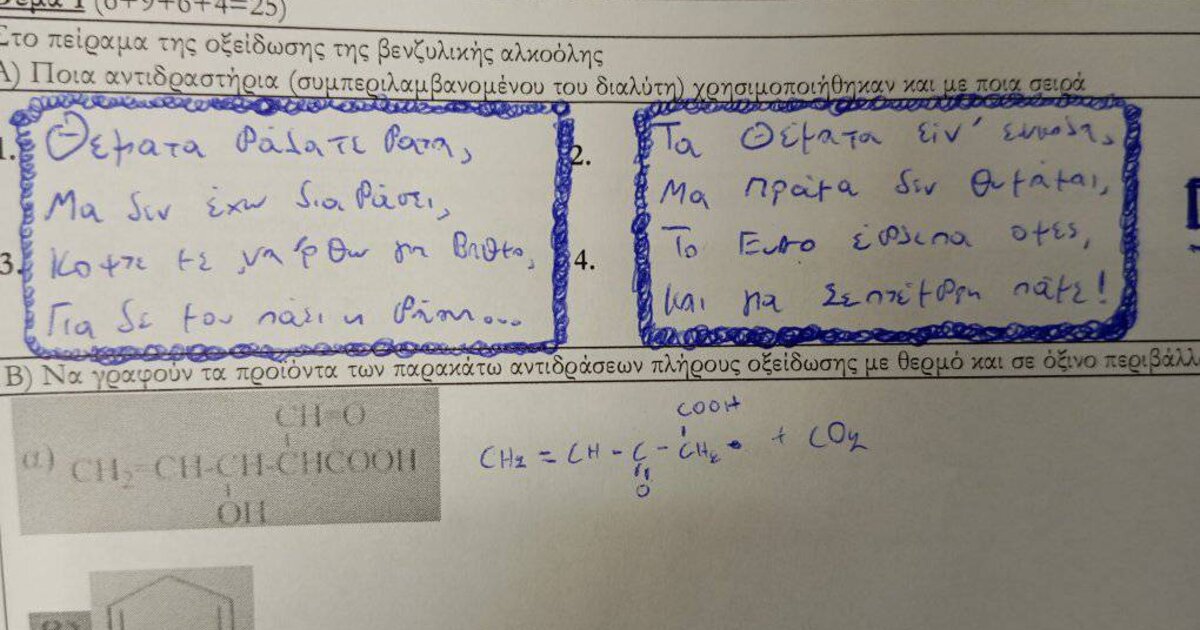 Θέμα 1 (6+9+6+4=25)
Στο πείραμα της οξείδωσης της βενζυλικής αλκοόλης
Α) Ποια αντιδραστήρια (συμπεριλαμβανομένου του διαλύτη) χρησιμοποιήθηκαν και με ποια σειρά
1. Θέματα βάλατε βατά,
Μα δεν έχω διαβάσει,
3. Κοψτε με, να 'ρθω για
Για δε μου πάει η
2. Τα Θέματα ειν' εύκολα,
Μα πράμα δεν θυμάμαι,
4. Το έβλεπα οψές,
Και για Σεπτέμβρη πάμε!
Β) Να γραφούν τα προϊόντα των παρακάτω αντιδράσεων πλήρους οξείδωσης με θερμό και σε όξινο περιβάλλ
CH=O
α) CH2=CH-CH-CHCOOH
OH
COOH
CH2 = CH - C - CH2 + CO2
O